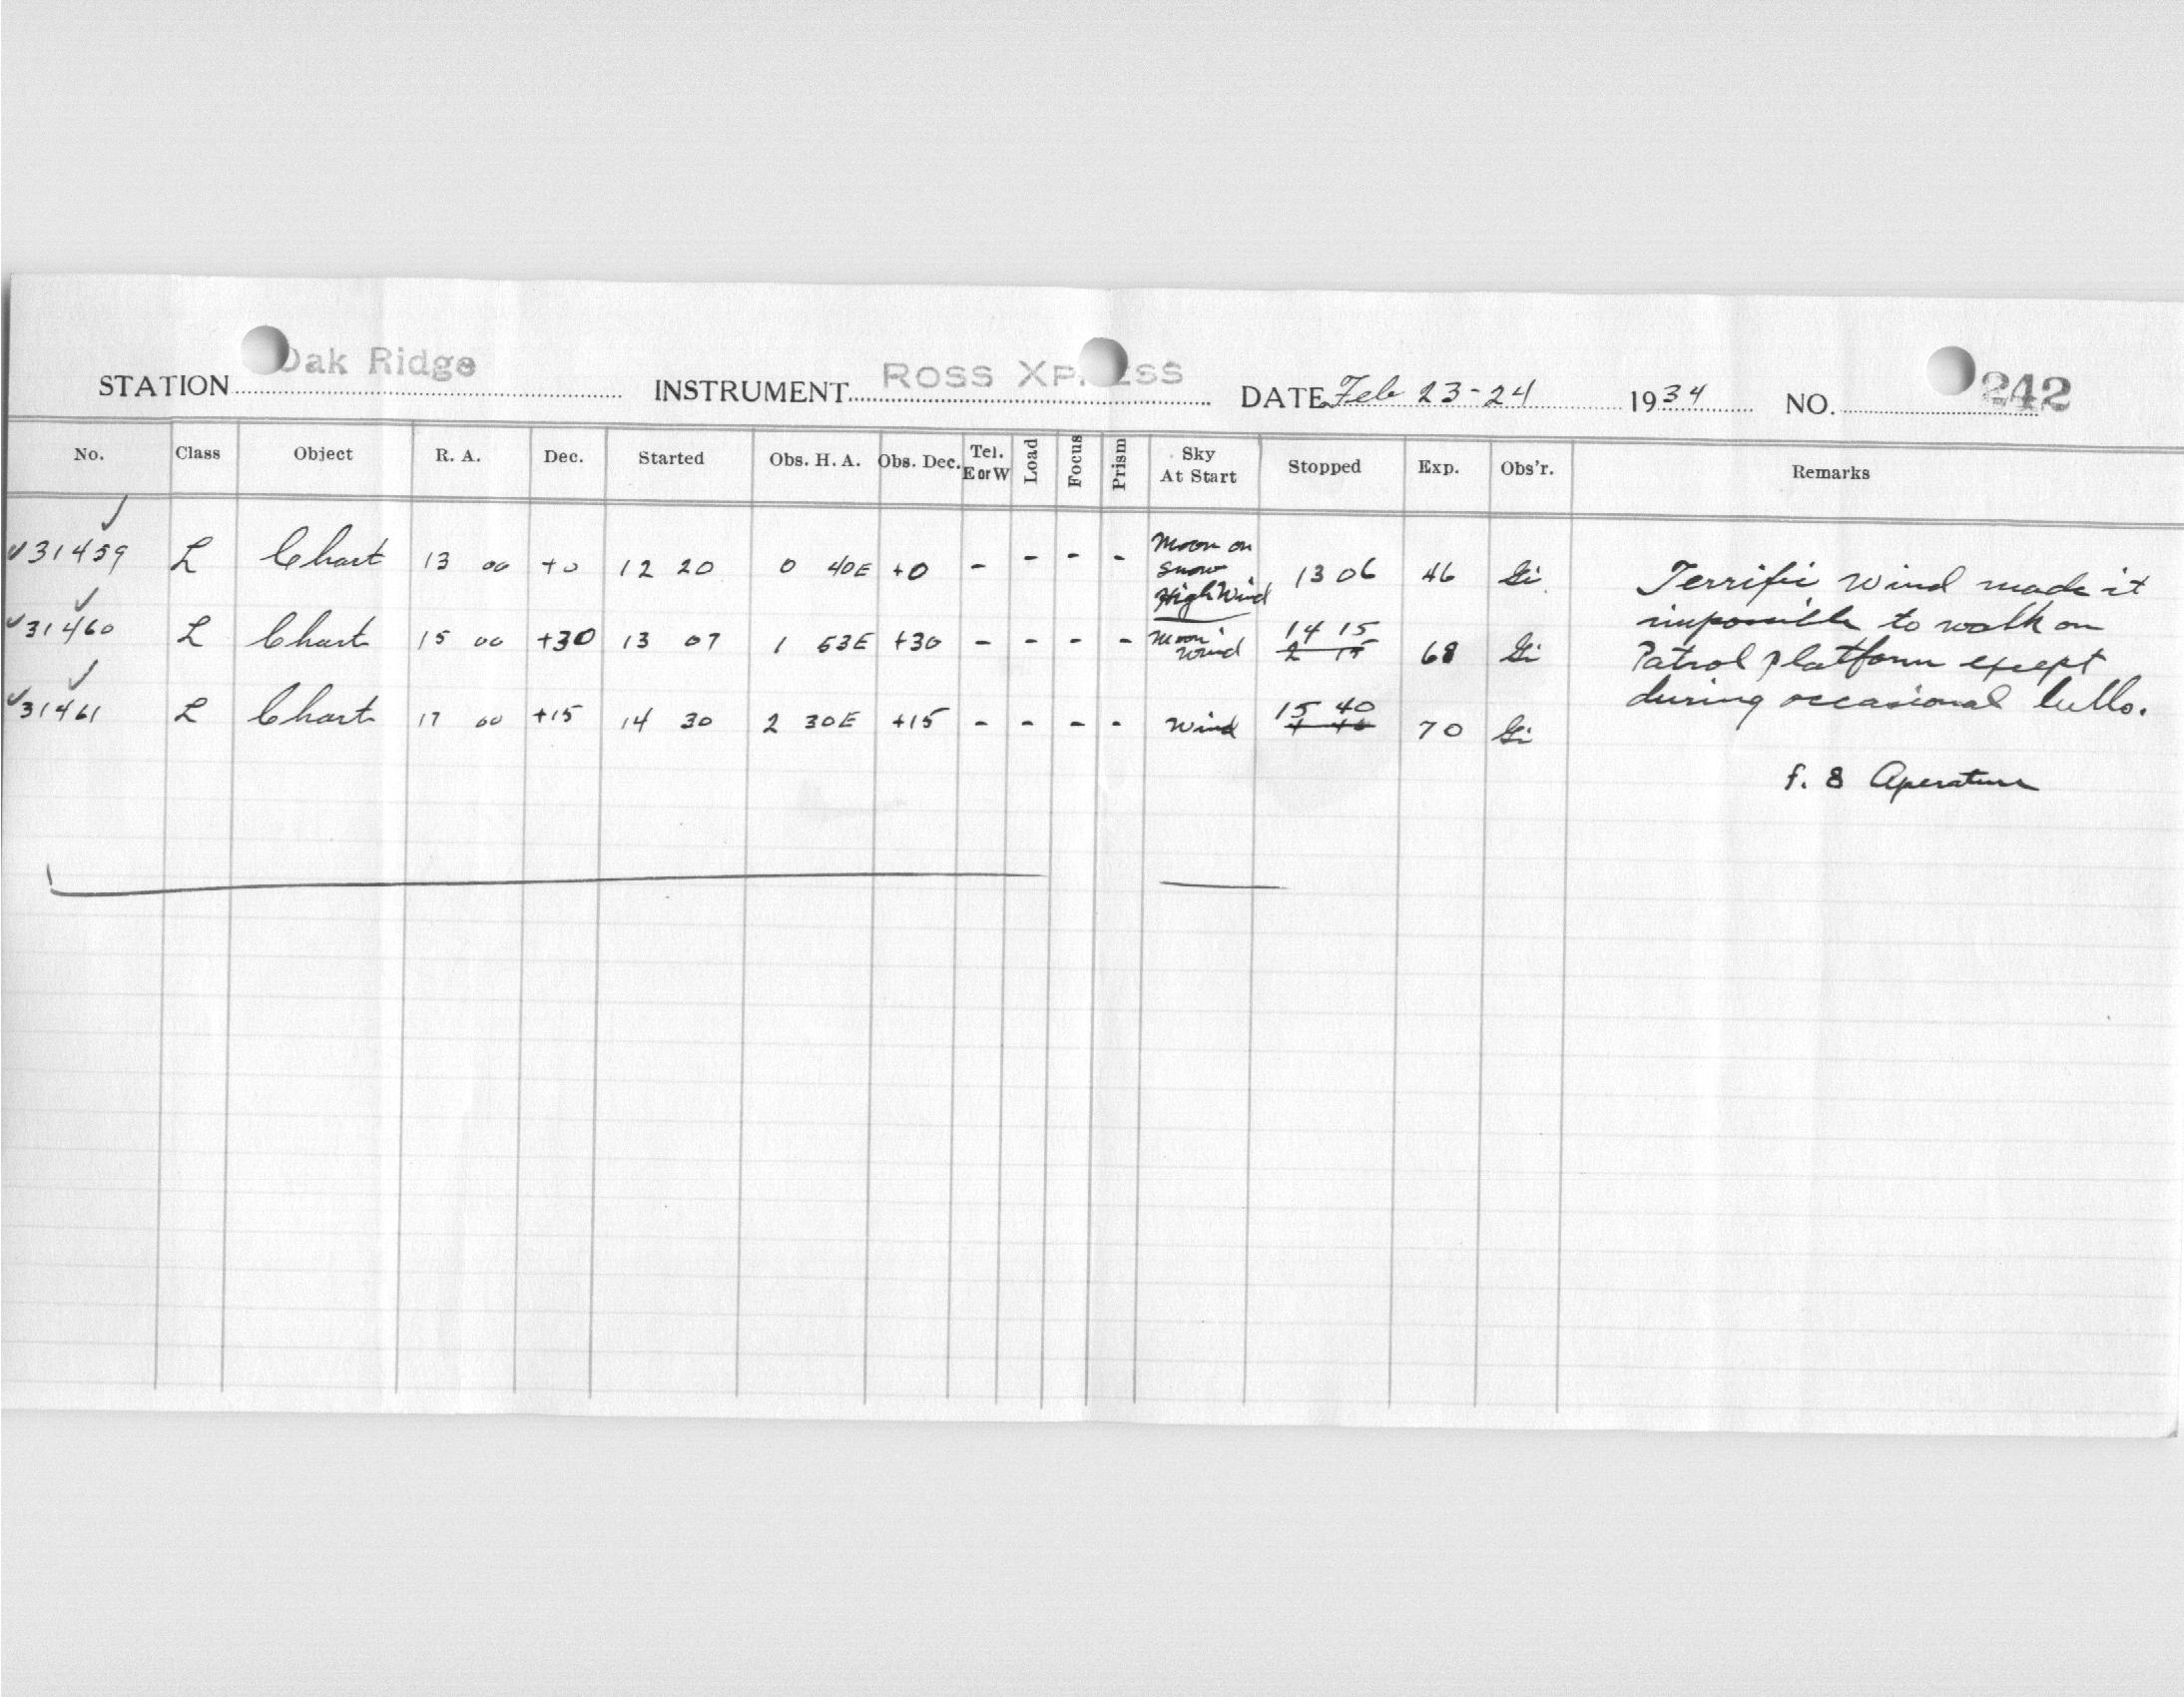 STATION Oak Ridge INSTRUMENT ROSS XPRESS DATE Feb 23-24 1934 NO. 242
No. Class Object R. A. Dec. Started Obs. H. A. Obs. Dec. Tel. E or W Load Focus Prism Sky At Start Stopped Exp. Obs'r. Remarks
31459 L Chart 13 00 +0 12 20 0 40E +0 - - - - Moon on snow High Wind 13 06 46 Gi.
31460 L Chart 15 00 +30 13 07 1 53E +30 - - - - Moon wind 14 15 68 Gi
31461 L Chart 17 00 +15 14 30 2 30E +15 - - - - Wind 15 40 70 Gi
Terrific wind made it
impossible to walk on
Patrol platform except
during occasional lulls.
f. 8 Aperature